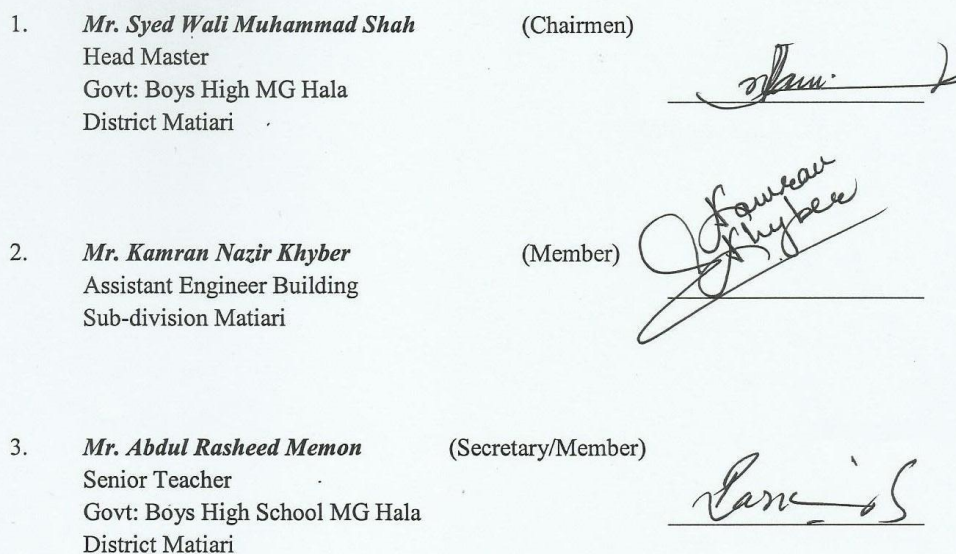 1. Mr. Syed Wali Muhammad Shah (Chairmen)
Head Master
Govt: Boys High MG Hala
District Matiari
2. Mr. Kamran Nazir Khyber (Member)
Kamran
Khyber
Assistant Engineer Building
Sub-division Matiari
3. Mr. Abdul Rasheed Memon (Secretary/Member)
Senior Teacher
Govt: Boys High School MG Hala
District Matiari